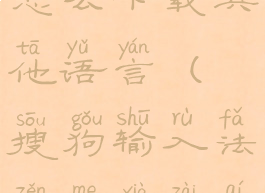 怎么下载其
tā yǔ yán
他语言（
sōu gǒu shū rù fǎ
搜狗输入法
zěn me xià zài qí